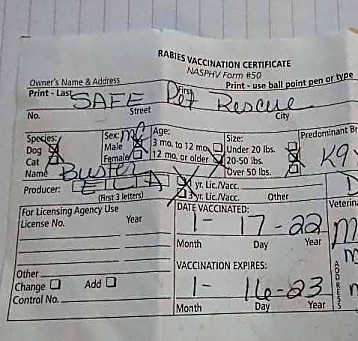 RABIES VACCINATION CERTIFICATE
NASPHV Form #50
Owner's Name & Address
Print - use ball point pen or type
Print - Last First
SAFE Pet Rescue
No. Street City
Species: Sex: Age: Size: Predominant Br
Dog Male 3 mo. to 12 mo. Under 20 lbs. K9
Cat Female 12 mo. or older 20-50 lbs.
Name Buster Over 50 lbs.
Producer: (First 3 letters) yr. Lic./Vacc.
3 yr. Lic./Vacc. Other
For Licensing Agency Use
License No. Year
DATE VACCINATED:
1- 17-22
Month Day Year
Veterina
VACCINATION EXPIRES:
1- 16-23
Month Day Year
Other
Change Add
Control No.
ADDRESS